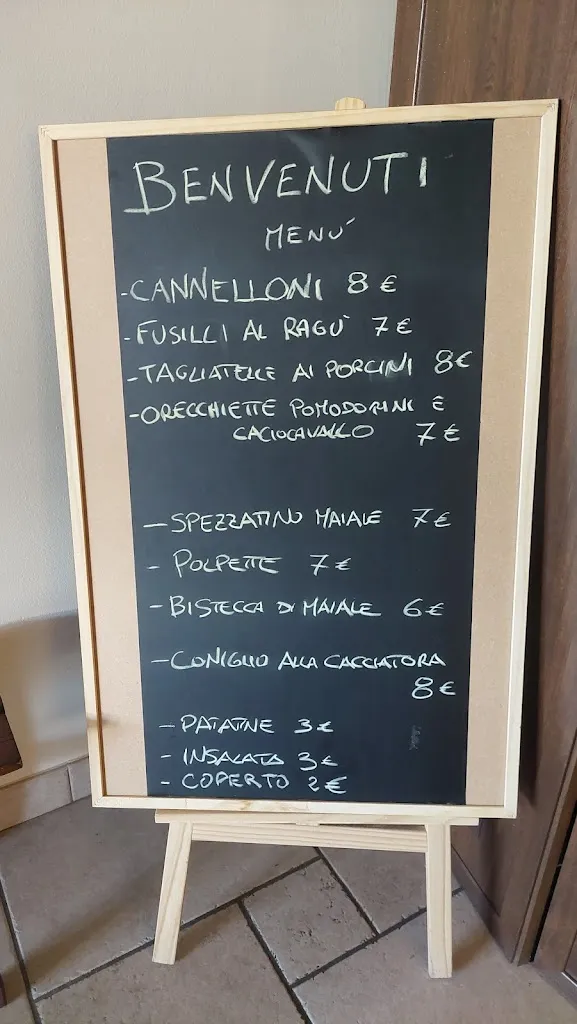 BENVENUTI
MENU'
-CANNELLONI 8 €
-FUSILLI AL RAGU' 7 €
-TAGLIATELLE AI PORCINI 8€
-ORECCHIETTE POMODORINI E
CACIOCAVALLO 7 €
- SPEZZATINO MAIALE 7€
- POLPETTE 7 €
- BISTECCA DI MAIALE 6 €
- CONIGLIO ALLA CACCIATORA
8 €
- PATATINE 3 €
- INSALATA 3 €
- COPERTO 2 €